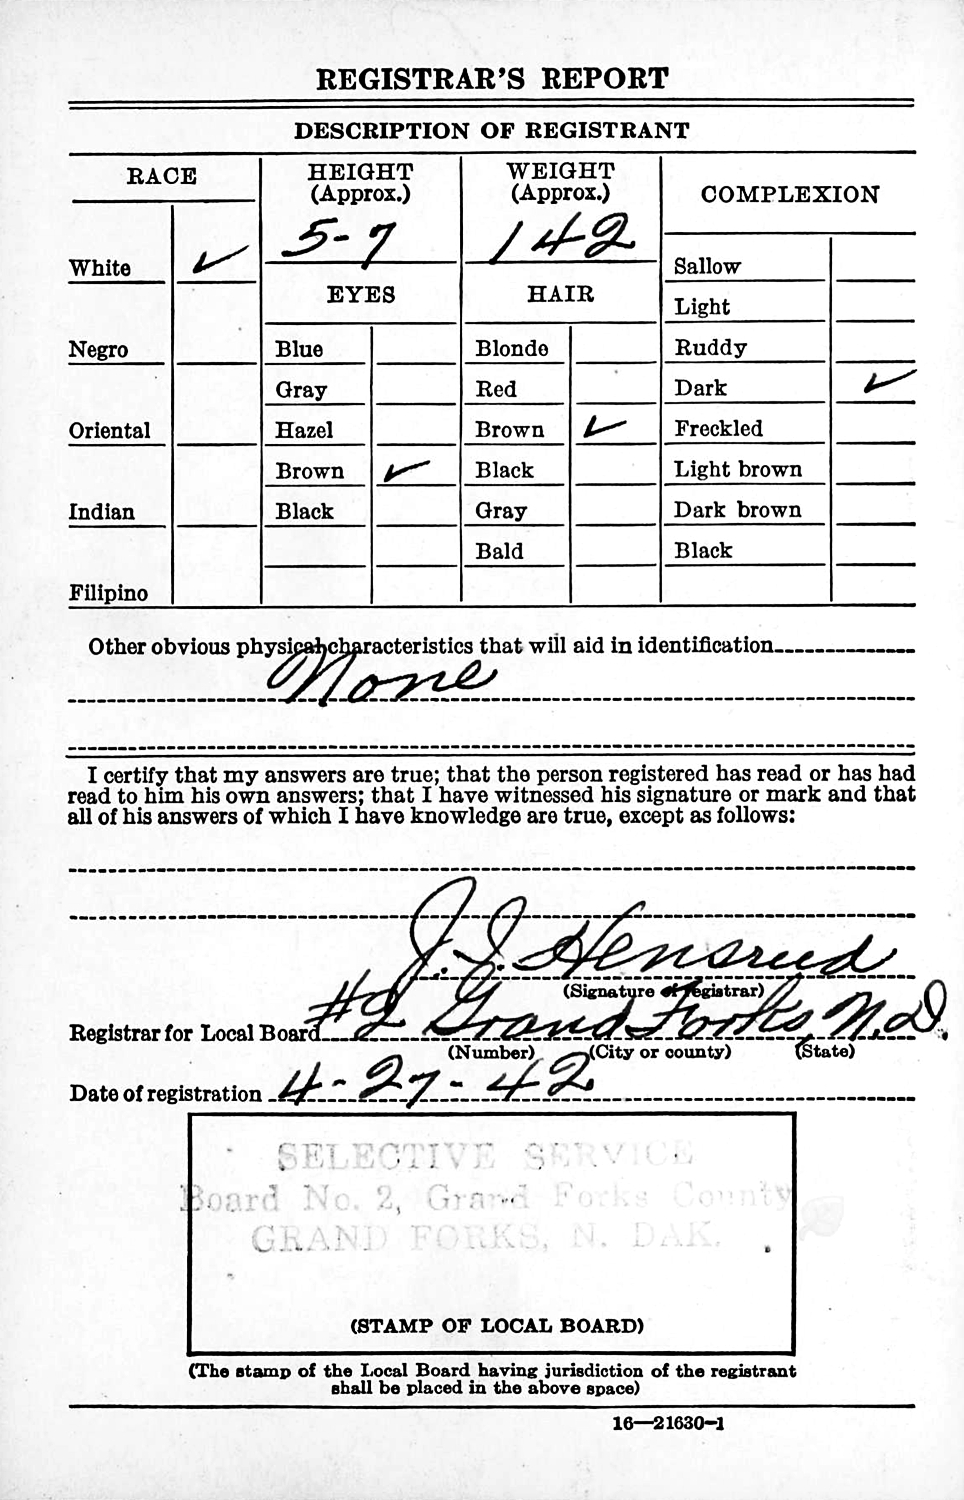 REGISTRAR'S REPORT
DESCRIPTION OF REGISTRANT
RACE
HEIGHT
(Approx.)
WEIGHT
(Approx.)
COMPLEXION
5-7
142
White ✓
Sallow
EYES
HAIR
Light
Negro
Blue
Blonde
Ruddy
Gray
Red
Dark ✓
Oriental
Hazel
Brown ✓
Freckled
Brown ✓
Black
Light brown
Indian
Black
Gray
Dark brown
Bald
Black
Filipino
Other obvious physical characteristics that will aid in identification
None
I certify that my answers are true; that the person registered has read or has had
read to him his own answers; that I have witnessed his signature or mark and that
all of his answers of which I have knowledge are true, except as follows:
J. J. Hensrud
(Signature of registrar)
Registrar for Local Board #2 Grand Forks, N.D.
(Number) (City or county) (State)
Date of registration 4-27-42
SELECTIVE SERVICE
Board No. 2, Grand Forks County
GRAND FORKS, N. DAK.
(STAMP OF LOCAL BOARD)
(The stamp of the Local Board having jurisdiction of the registrant
shall be placed in the above space)
16—21630-1